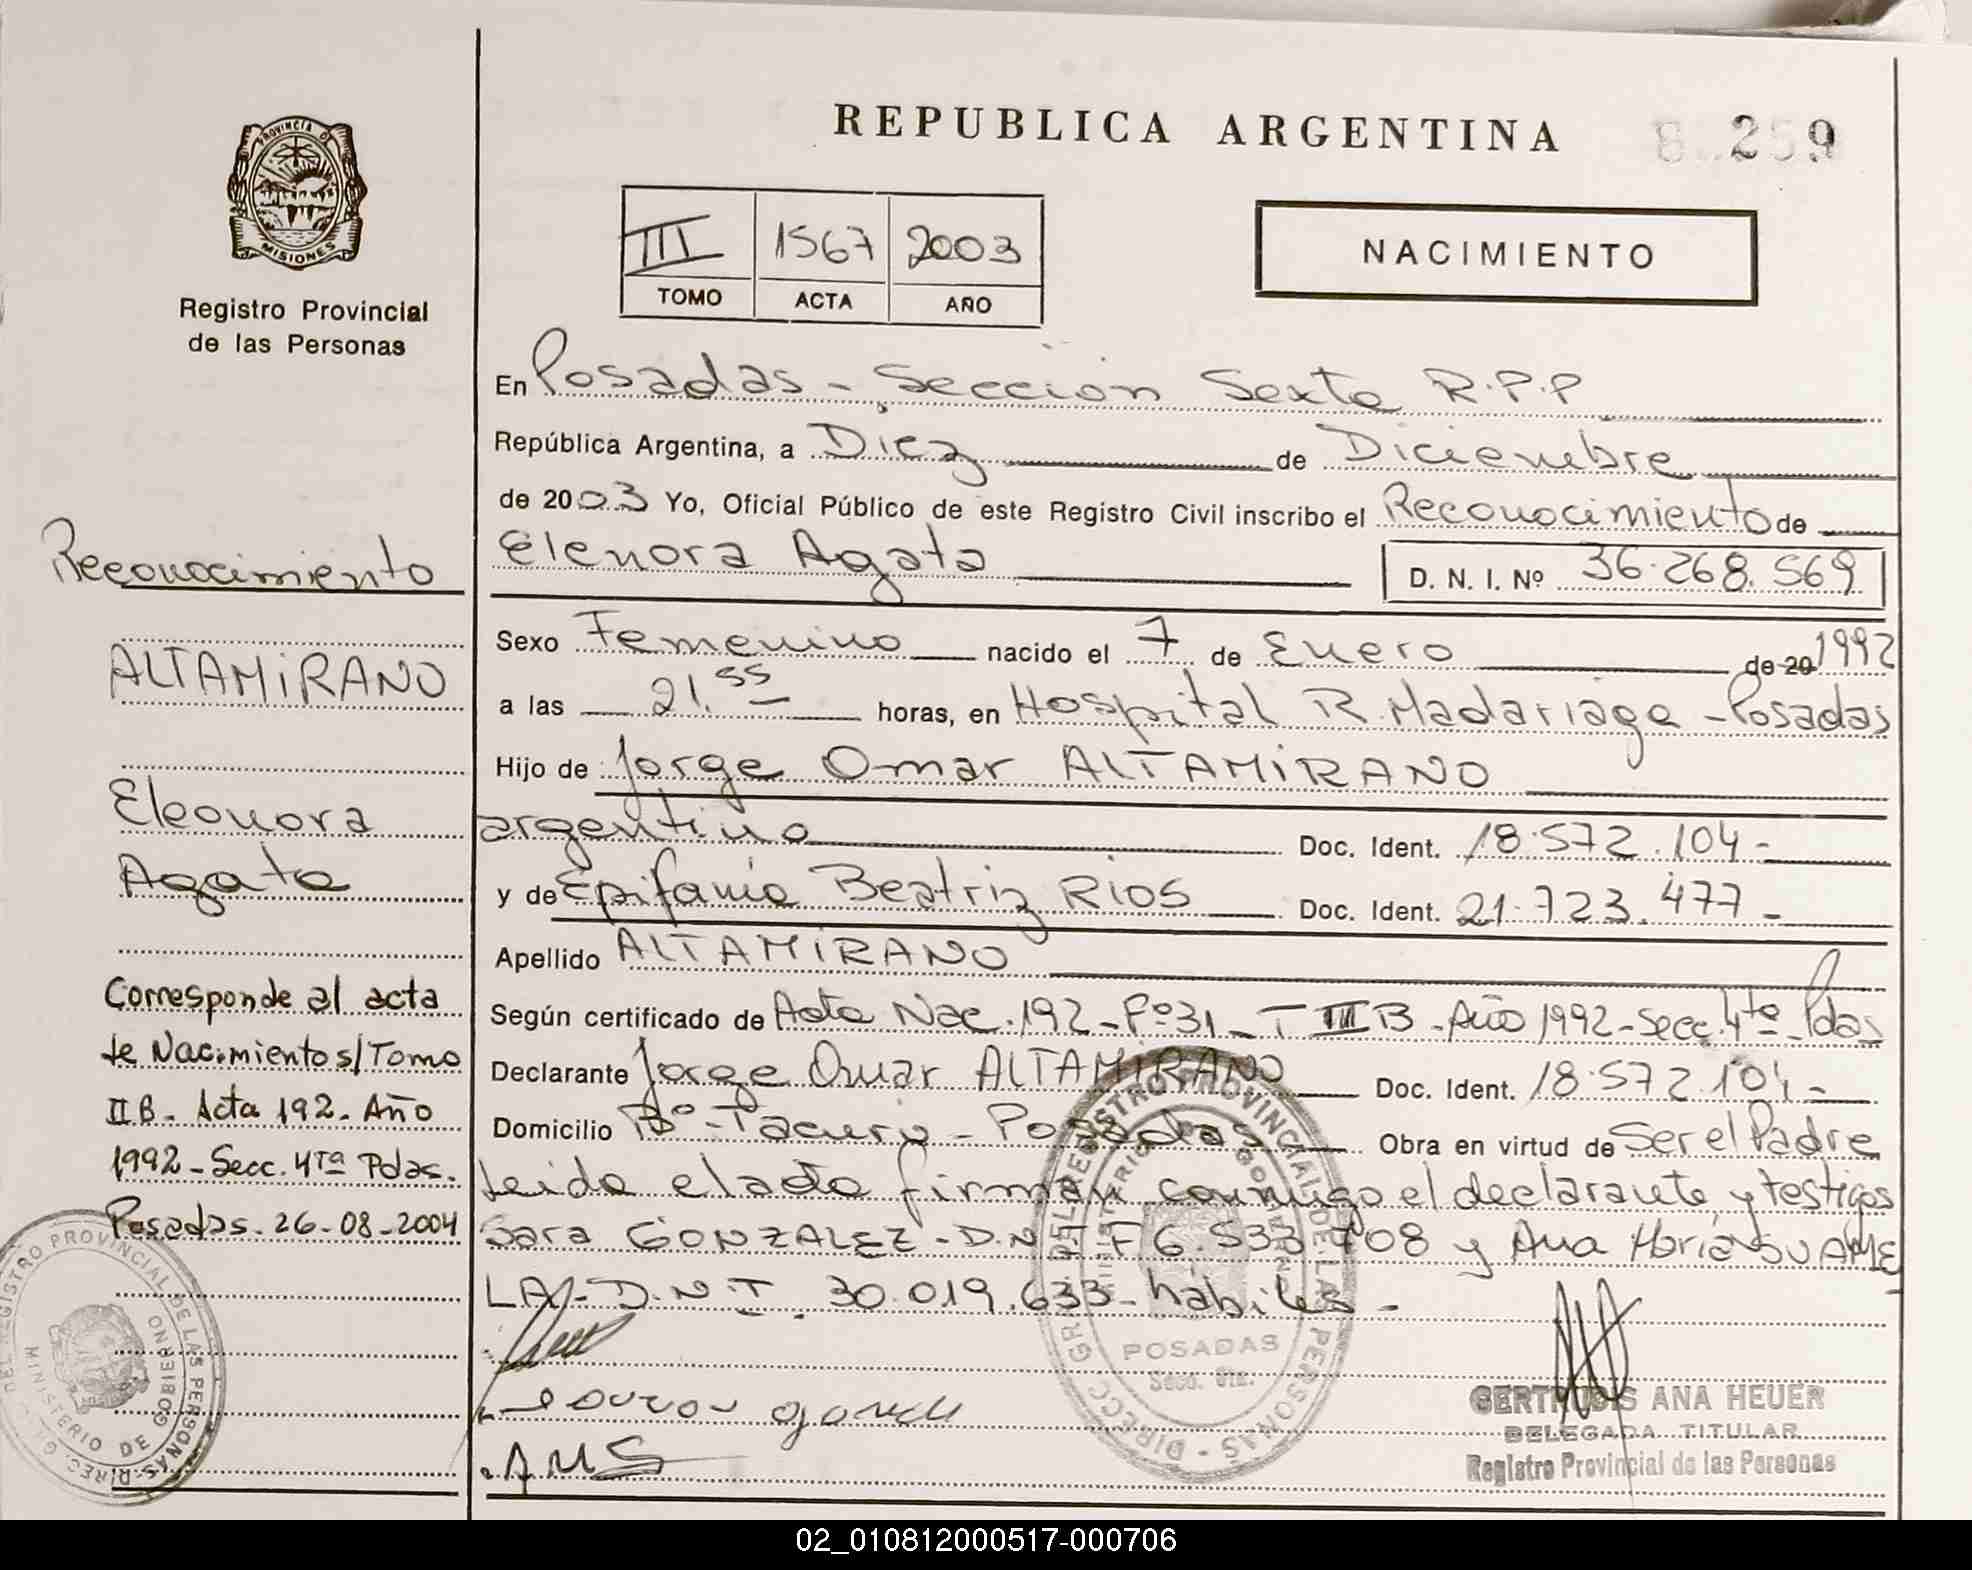 REPUBLICA ARGENTINA
259
PROVINCIA DE
MISIONES
Registro Provincial
de las Personas
III 1567 2003
TOMO ACTA AÑO
NACIMIENTO
En Posadas - Sección Sexta R.P.P
República Argentina, a Diez de Diciembre
de 2003 Yo, Oficial Público de este Registro Civil inscribo el Reconocimiento de
Elenora Agata D. N. I. Nº 36.268.569
Sexo Femenino nacido el 7 de Enero de 20 1992
a las 21.55 horas, en Hospital R. Madariaga - Posadas
Hijo de Jorge Omar ALTAMIRANO
argentino Doc. Ident. 18.572.104-
y de Epifania Beatriz RIOS Doc. Ident. 21.723.477-
Apellido ALTAMIRANO
Según certificado de Acta Nac. 192 - Fº 31 - T III B - Año 1992 - Secc. 4ta - Pdas
Declarante Jorge Omar ALTAMIRANO Doc. Ident. 18.572.104-
Domicilio Bº - Tacurú - Posadas Obra en virtud de Ser el Padre
Leida el acta firman conmigo el declarante y testigos
Sara GONZALEZ - D.N.I. F 6.533.708 y Ana María SUAME
LA - D.N.I. 30.019.633 - hábiles -
AMS
GERTRUDIS ANA HEUER
DELEGADA TITULAR
Registro Provincial de las Personas
DIRECC. GRAL. DEL REGISTRO PROVINCIAL DE LAS PERSONAS
MINISTERIO DE GOBIERNO
POSADAS
Secc. 6ta.
Reconocimiento
ALTAMIRANO
Eleonora
Agata
Corresponde al acta
de Nacimiento s/Tomo
II B - Acta 192 - Año
1992 - Secc. 4Ta Pdas.
Posadas. 26-08-2004
DIREC. GRAL. DEL REGISTRO PROVINCIAL DE LAS PERSONAS
MINISTERIO DE GOBIERNO
02_010812000517-000706